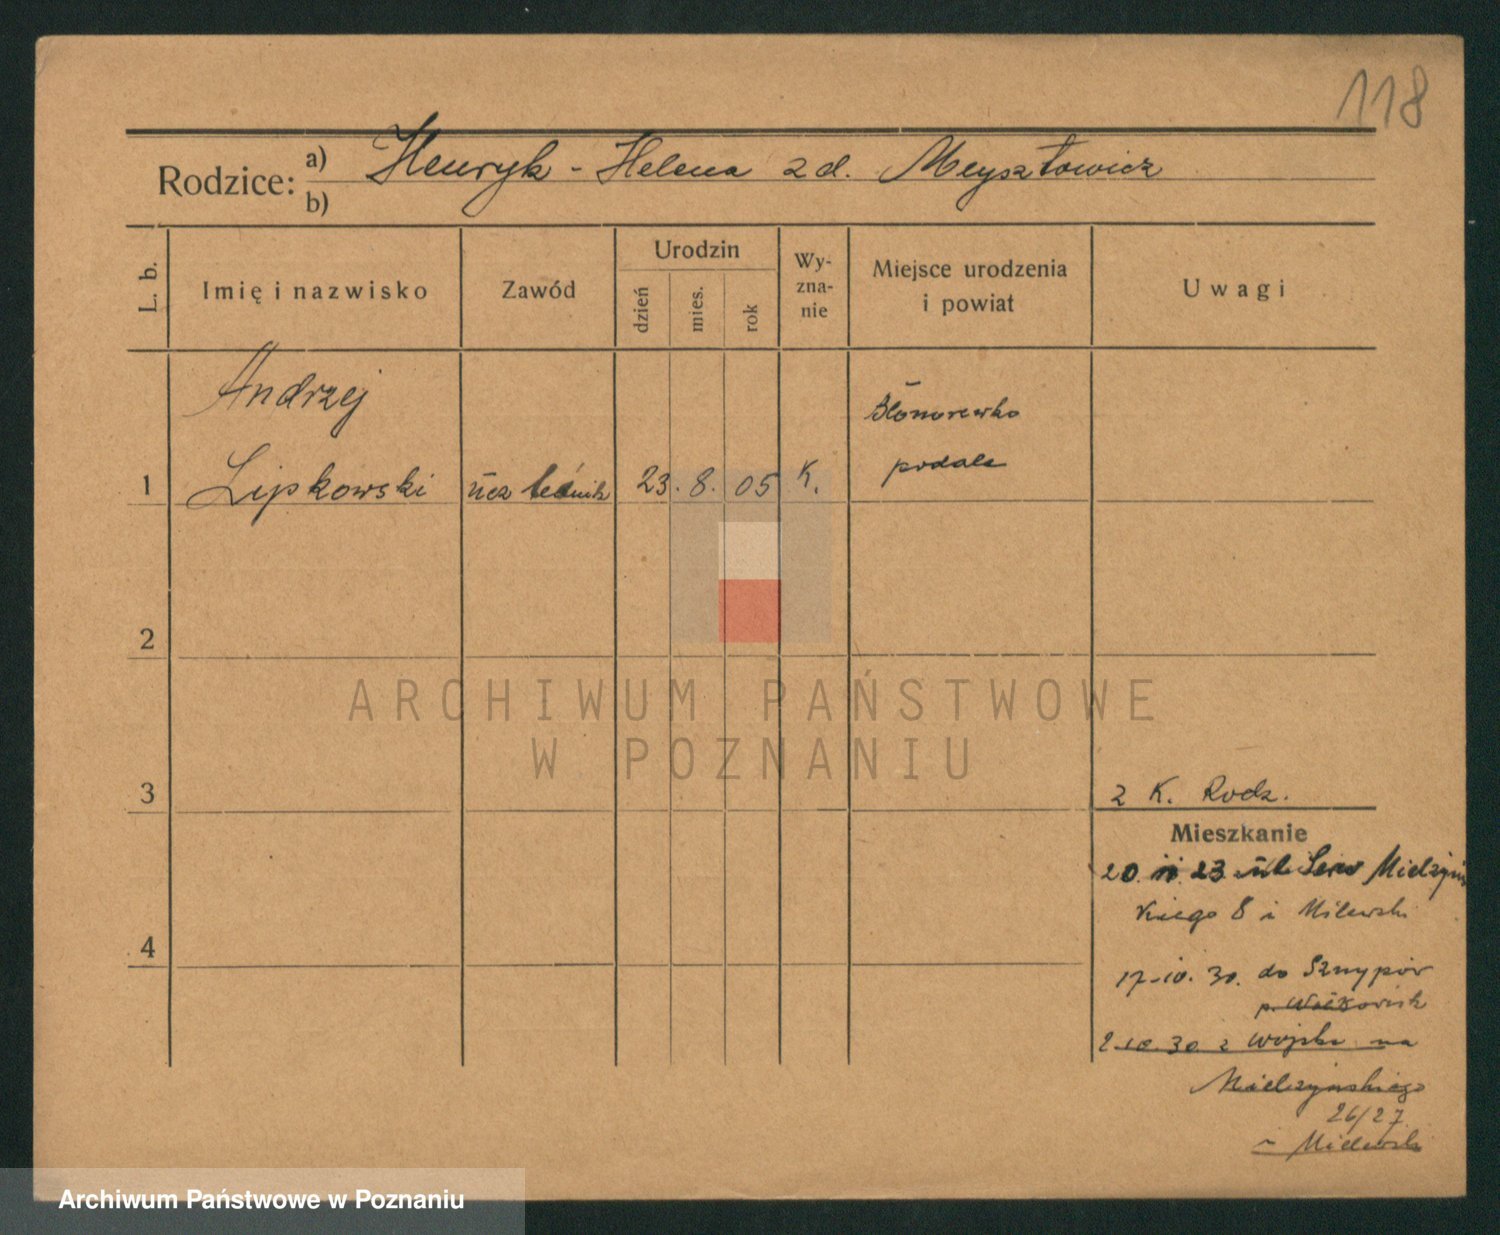 118
Rodzice: a) Henryk - Helena z d. Meysztowicz
b)
L. b.
Imię i nazwisko
Zawód
Urodzin
dzień
mies.
rok
Wy-
zna-
nie
Miejsce urodzenia
i powiat
Uwagi
Andrzej
1 Lipkowski
ucz
23. 8. 05
K.
podole
2
3
z K. Rodz.
Mieszkanie
20. 11. 23 ul. Sew Mielżyń
skiego 8 i Milewski
4
17-10. 30. do
2.10.30 z wojska na
Mielżyńskiego
26/27
i Milewski
ARCHIWUM PAŃSTWOWE
W POZNANIU
Archiwum Państwowe w Poznaniu